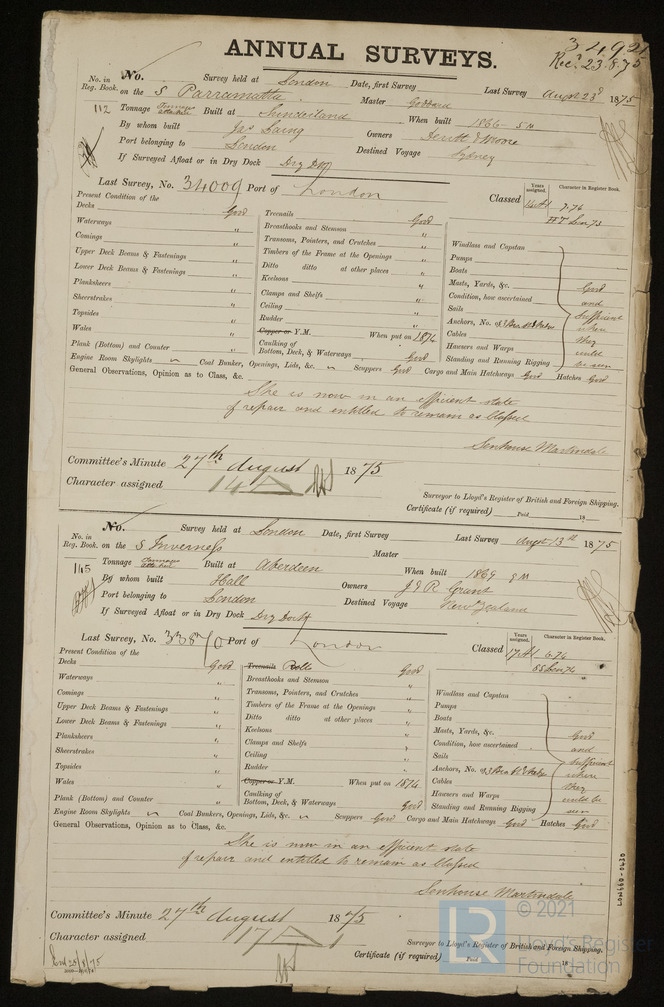 34921
Rec. 23.8.75
ANNUAL SURVEYS.
No. in Reg. Book. No. Survey held at London Date, first Survey Last Survey Augst 23d 1875
on the S Parramatta Master Goddard
112 Tonnage Built at Sunderland When built 1866 5 M
By whom built Jas Laing Owners
Port belonging to London Destined Voyage Sydney
If Surveyed Afloat or in Dry Dock Dry Dk
Last Survey, No. 34009 Port of London Classed Years assigned. Character in Register Book.
14 A1 7.76
Present Condition of the
Decks Good Treenails Good
Waterways " Breasthooks and Stemson " Windlass and Capstan
Comings " Transoms, Pointers, and Crutches " Pumps
Upper Deck Beams & Fastenings " Timbers of the Frame at the Openings " Boats
Lower Deck Beams & Fastenings " Ditto ditto at other places " Masts, Yards, &c. Good
Planksheers " Keelsons " Condition, how ascertained and
Sheerstrakes " Clamps and Shelfs " Sails sufficient
Topsides " Ceiling " Anchors, No. where
Wales " Rudder " Cables they
Plank (Bottom) and Counter " Copper or Y.M. When put on 1874 Hawsers and Warps could
Caulking of Bottom, Deck, & Waterways Good Standing and Running Rigging be seen
Engine Room Skylights " Coal Bunker, Openings, Lids, &c. " Scuppers Good Cargo and Main Hatchways Good Hatches Good
General Observations, Opinion as to Class, &c.
She is now in an efficient state
of repair and entitled to remain as Classed
Senhouse Martindale
Committee's Minute 27th August 1875
Character assigned 14 A 1
Surveyor to Lloyd's Register of British and Foreign Shipping.
Certificate (if required) Paid 18
No. in Reg. Book. No. Survey held at London Date, first Survey Last Survey Augst 13th 1875
on the S Inverness Master
1145 Tonnage Built at Aberdeen When built 1869 8 M
By whom built Hall Owners J & R Grant
Port belonging to London Destined Voyage New Zealand
If Surveyed Afloat or in Dry Dock Dry Dock
Last Survey, No. 33870 Port of London Classed Years assigned. Character in Register Book.
17 A1 6.74
SS Lon 74
Present Condition of the
Decks Good Treenails Bolts Good
Waterways " Breasthooks and Stemson " Windlass and Capstan
Comings " Transoms, Pointers, and Crutches " Pumps
Upper Deck Beams & Fastenings " Timbers of the Frame at the Openings " Boats
Lower Deck Beams & Fastenings " Ditto ditto at other places " Masts, Yards, &c. Good
Planksheers " Keelsons " Condition, how ascertained and
Sheerstrakes " Clamps and Shelfs " Sails sufficient
Topsides " Ceiling " Anchors, No. where
Wales " Rudder " Cables they
Plank (Bottom) and Counter " Copper or Y.M. When put on 1874 Hawsers and Warps could be
Caulking of Bottom, Deck, & Waterways Good Standing and Running Rigging seen
Engine Room Skylights " Coal Bunkers, Openings, Lids, &c. " Scuppers Good Cargo and Main Hatchways Good Hatches Good
General Observations, Opinion as to Class, &c.
She is now in an efficient state
of repair and entitled to remain as Classed
Senhouse Martindale
Committee's Minute 27th August 1875
Character assigned 17 A 1
Surveyor to Lloyd's Register of British and Foreign Shipping.
Certificate (if required) Paid 18
LON660-0430
LR © 2021
Lloyds Register
Foundation